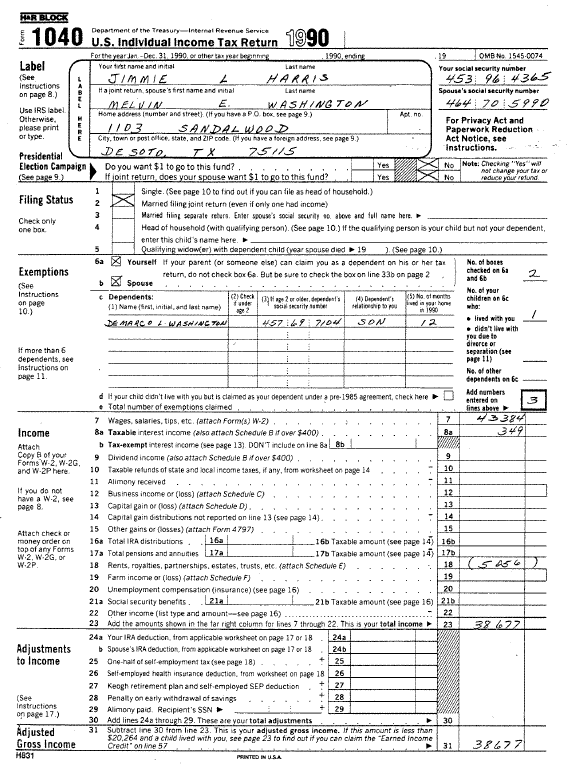 H&R BLOCK
Form 1040 Department of the Treasury—Internal Revenue Service
U.S. Individual Income Tax Return 1990
For the year Jan.–Dec. 31, 1990, or other tax year beginning , 1990, ending , 19 OMB No. 1545-0074
Label
(See Instructions on page 8.)
Use IRS label. Otherwise, please print or type.
LABEL HERE
Your first name and initial Last name Your social security number
JIMMIE L HARRIS 453 96 4365
If a joint return, spouse's first name and initial Last name Spouse's social security number
MELVIN E. WASHINGTON 464 70 5990
Home address (number and street). (If you have a P.O. box, see page 9.) Apt. no.
1103 SANDALWOOD
City, town or post office, state, and ZIP code. (If you have a foreign address, see page 9.)
DESOTO, TX 75115
For Privacy Act and Paperwork Reduction Act Notice, see Instructions.
Presidential Election Campaign (See page 9.)
Do you want $1 to go to this fund? Yes No
If joint return, does your spouse want $1 to go to this fund? Yes No
Note: Checking "Yes" will not change your tax or reduce your refund.
Filing Status
Check only one box.
1 Single. (See page 10 to find out if you can file as head of household.)
2 Married filing joint return (even if only one had income)
3 Married filing separate return. Enter spouse's social security no. above and full name here.
4 Head of household (with qualifying person). (See page 10.) If the qualifying person is your child but not your dependent, enter this child's name here.
5 Qualifying widow(er) with dependent child (year spouse died ► 19 ). (See page 10.)
Exemptions
(See Instructions on page 10.)
If more than 6 dependents, see Instructions on page 11.
6a Yourself If your parent (or someone else) can claim you as a dependent on his or her tax return, do not check box 6a. But be sure to check the box on line 33b on page 2
b Spouse
No. of boxes checked on 6a and 6b 2
c Dependents:
(1) Name (first, initial, and last name) (2) Check if under age 2 (3) If age 2 or older, dependent's social security number (4) Dependent's relationship to you (5) No. of months lived in your home in 1990
DEMARCO L. WASHINGTON 457 69 7104 SON 12
No. of your children on 6c who:
• lived with you 1
• didn't live with you due to divorce or separation (see page 11)
No. of other dependents on 6c
d If your child didn't live with you but is claimed as your dependent under a pre-1985 agreement, check here ►
e Total number of exemptions claimed
Add numbers entered on lines above ► 3
Income
Attach Copy B of your Forms W-2, W-2G, and W-2P here.
If you do not have a W-2, see page 8.
Attach check or money order on top of any Forms W-2, W-2G, or W-2P.
7 Wages, salaries, tips, etc. (attach Form(s) W-2) 7 43384
8a Taxable interest income (also attach Schedule B if over $400) 8a 349
b Tax-exempt interest income (see page 13). DON'T include on line 8a 8b
9 Dividend income (also attach Schedule B if over $400) 9
10 Taxable refunds of state and local income taxes, if any, from worksheet on page 14 10
11 Alimony received 11
12 Business income or (loss) (attach Schedule C) 12
13 Capital gain or (loss) (attach Schedule D) 13
14 Capital gain distributions not reported on line 13 (see page 14) 14
15 Other gains or (losses) (attach Form 4797) 15
16a Total IRA distributions 16a 16b Taxable amount (see page 14) 16b
17a Total pensions and annuities 17a 17b Taxable amount (see page 14) 17b
18 Rents, royalties, partnerships, estates, trusts, etc. (attach Schedule E) 18 (5056)
19 Farm income or (loss) (attach Schedule F) 19
20 Unemployment compensation (insurance) (see page 16) 20
21a Social security benefits 21a 21b Taxable amount (see page 16) 21b
22 Other income (list type and amount—see page 16) 22
23 Add the amounts shown in the far right column for lines 7 through 22. This is your total income ► 23 38677
Adjustments to Income
(See Instructions on page 17.)
24a Your IRA deduction, from applicable worksheet on page 17 or 18 24a
b Spouse's IRA deduction, from applicable worksheet on page 17 or 18 24b
25 One-half of self-employment tax (see page 18) 25
26 Self-employed health insurance deduction, from worksheet on page 18 26
27 Keogh retirement plan and self-employed SEP deduction 27
28 Penalty on early withdrawal of savings 28
29 Alimony paid. Recipient's SSN ► 29
30 Add lines 24a through 29. These are your total adjustments ► 30
Adjusted Gross Income
31 Subtract line 30 from line 23. This is your adjusted gross income. If this amount is less than $20,264 and a child lived with you, see page 23 to find out if you can claim the "Earned Income Credit" on line 57 ► 31 38677
H831 PRINTED IN U.S.A.